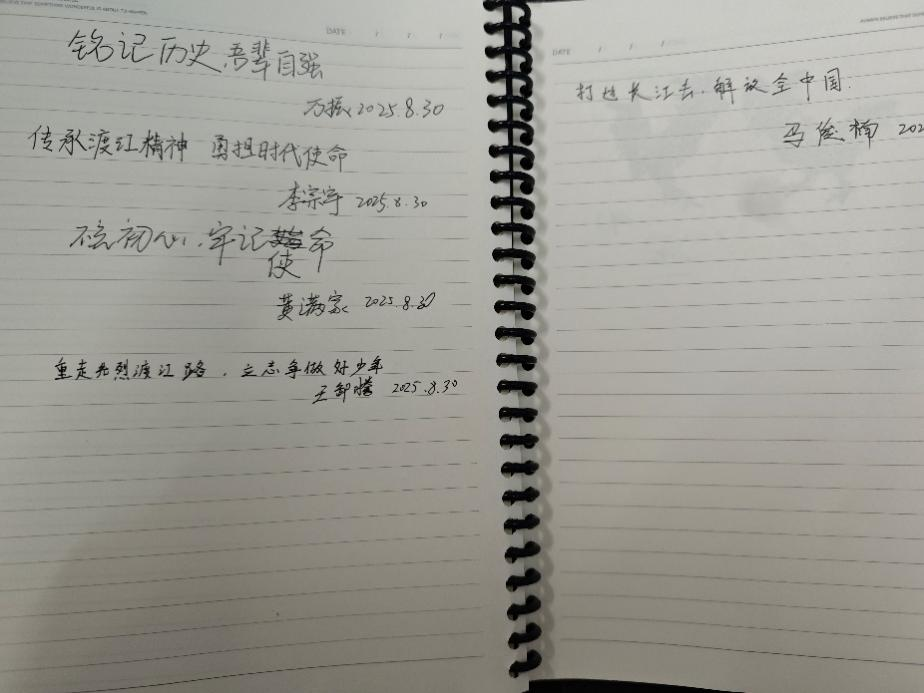 BELIEVE THAT SOMETHING WONDERFUL IS ABOUT TO HAPPEN.
DATE / / /
铭记历史,吾辈自强
万振 2025.8.30
传承渡江精神 勇担时代使命
李宗宇 2025.8.30
不忘初心,牢记使命
黄满家 2025.8.30
重走先烈渡江路,立志争做好少年
王 腾 2025.8.30
DATE / / /
打过长江去,解放全中国.
马俊楠 202